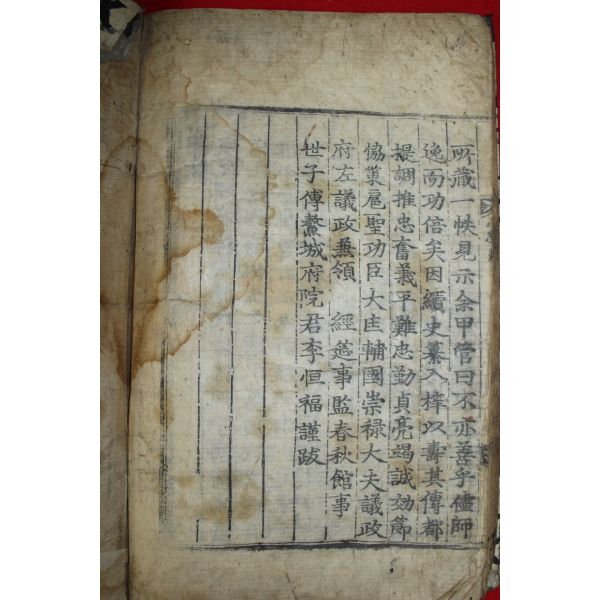 所藏一帙見示余甲管曰不亦善乎儘師
逸而功倍矣因續史纂入梓以壽其傳都
提調推忠奮義平難忠勤貞亮竭誠効節
恊策扈聖功臣大匡輔國崇祿大夫議政
府左議政兼領　經筵事監春秋館事
世子傅鰲城府院君李恒福謹跋